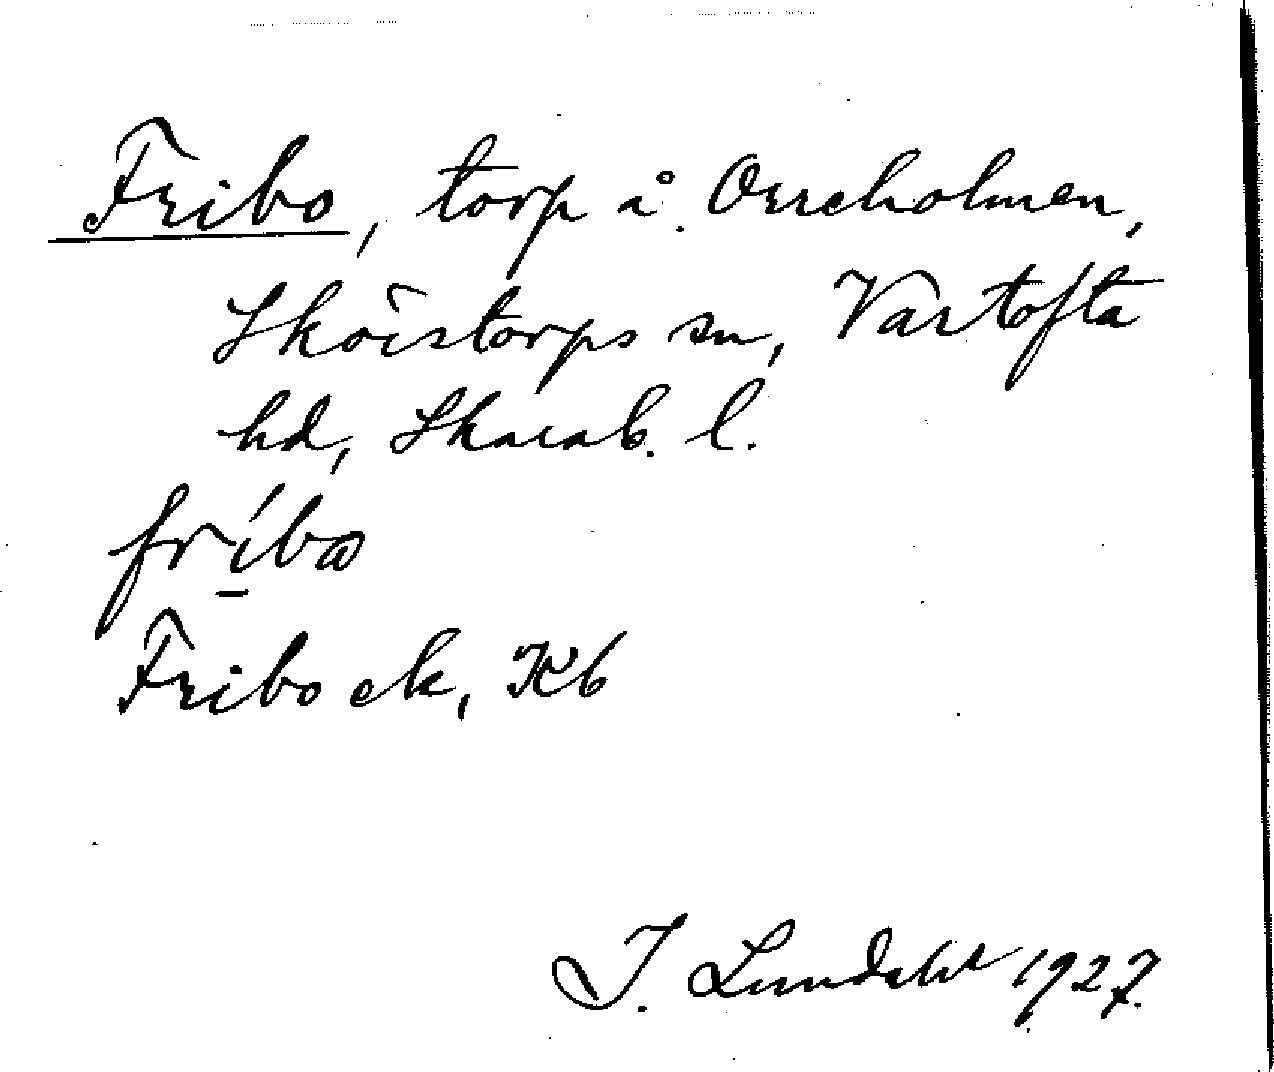 Fribo, torp å Orreholmen,
Sköistorps sn, Vartofta
hd, Skarab. l.
fríbω
Fribo ek, Kb
I. Lundahl 1927.